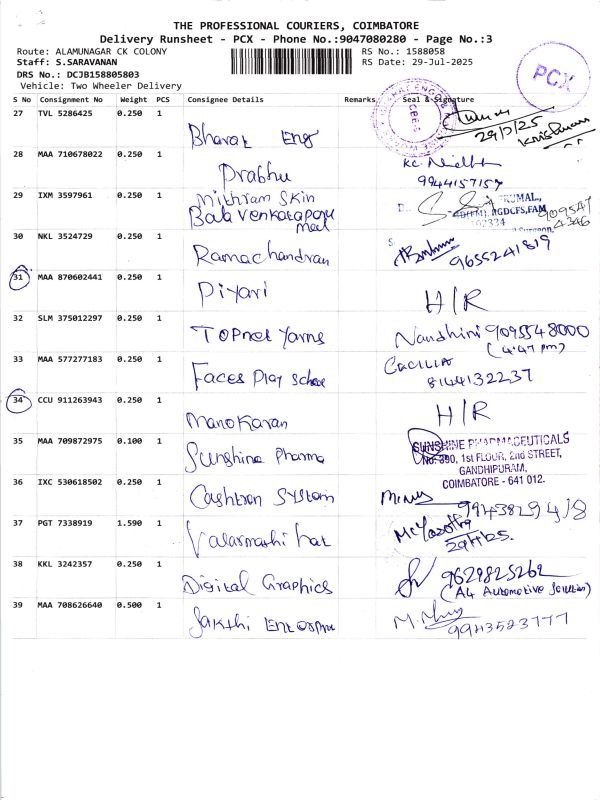 THE PROFESSIONAL COURIERS, COIMBATORE
Delivery Runsheet - PCX - Phone No.:9047080280 - Page No.:3
Route: ALAMUNAGAR CK COLONY
RS No.: 1588058
Staff: S.SARAVANAN
RS Date: 29-Jul-2025
DRS No.: DCJB158805803
Vehicle: Two Wheeler Delivery
PCX
S No Consignment No Weight PCS Consignee Details Remarks Seal & Signature
27 TVL 5286425 0.250 1 Bharat Eng
29/7/25
28 MAA 710678022 0.250 1 Prabhu
9944157157
29 IXM 3597961 0.250 1 Mithram Skin
30 NKL 3524729 0.250 1 Ramachandran 9655241819
31 MAA 870602441 0.250 1 Piyari H/R
32 SLM 375012297 0.250 1 Topnet Yarns Nandhini 9095548000
(4:47 pm)
33 MAA 577277183 0.250 1 Faces Play CACILIA
8144132237
34 CCU 911263943 0.250 1 Manokaran H/R
35 MAA 709872975 0.100 1 Sunshine Pharma
SUNSHINE PHARMACEUTICALS
No. 390, 1st FLOOR, 2nd STREET,
GANDHIPURAM,
COIMBATORE - 641 012.
36 IXC 530618502 0.250 1 System
37 PGT 7338919 1.590 1
38 KKL 3242357 0.250 1 Digital Graphics 9629825262
(A4 Automotive
39 MAA 708626640 0.500 1 Sakthi 9943523777